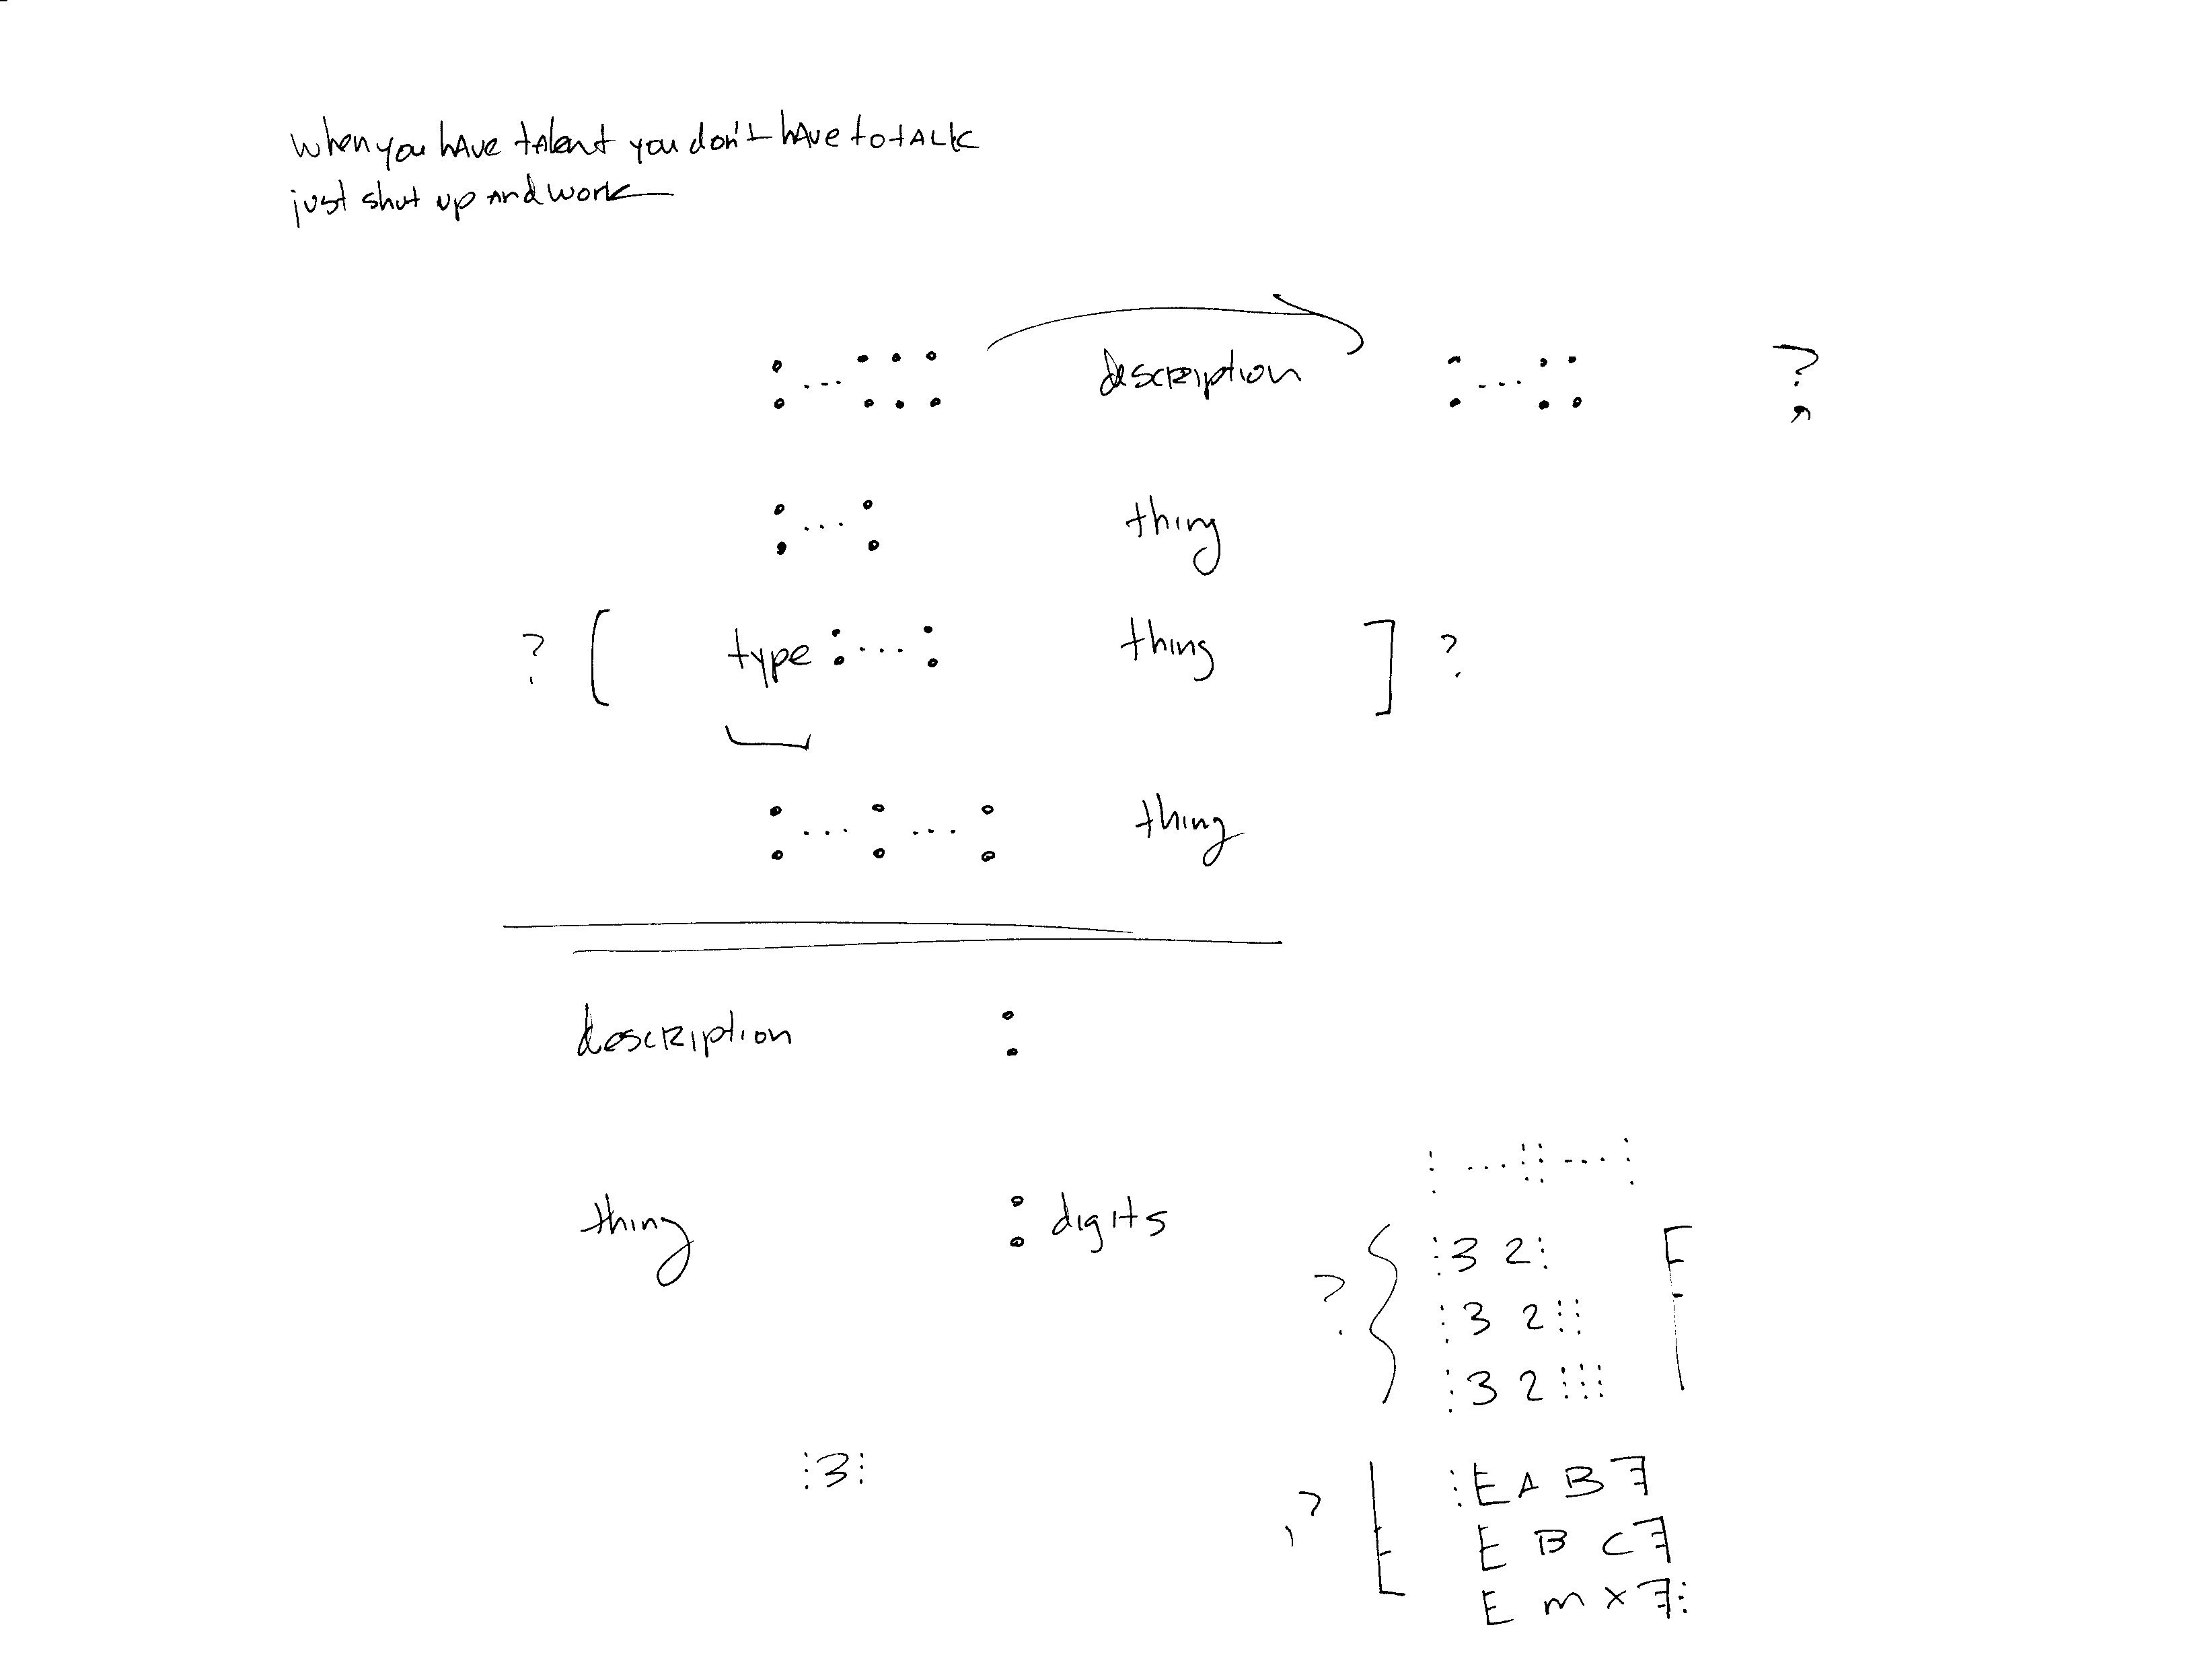 when you have talent you don't have to talk
just shut up and work
: ... : : : description : ... : : ?
: ... : thing
? [ type : ... : thing ] ?
: ... : ... : thing
description :
thing : digits
⋮ ... ⋮⋮ ... ⋮
? { ⋮3 2⋮
⋮3 2⋮⋮
⋮3 2⋮⋮⋮
⋮3⋮
? ⋮E A B ∃
E B C ∃
E m x ∃⋮